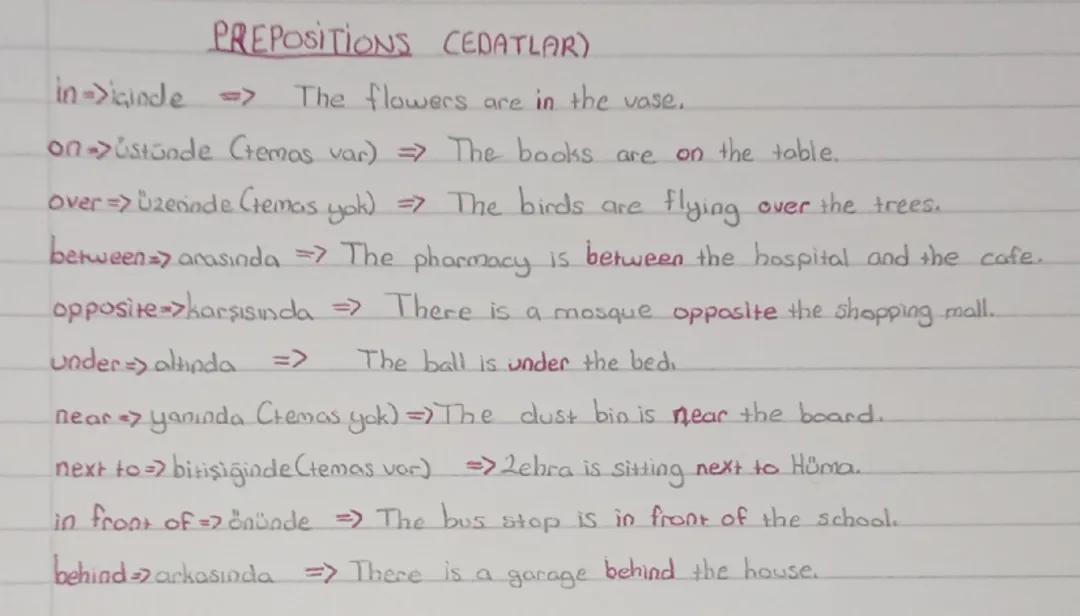 PREPOSITIONS (EDATLAR)
in => içinde => The flowers are in the vase.
on => üstünde (temas var) => The books are on the table.
over => üzerinde (temas yok) => The birds are flying over the trees.
between => arasında => The pharmacy is between the hospital and the cafe.
opposite => karşısında => There is a mosque opposite the shopping mall.
under => altında => The ball is under the bed.
near => yanında (temas yok) => The dust bin is near the board.
next to => bitişiğinde (temas var) => Zehra is sitting next to Hüma.
in front of => önünde => The bus stop is in front of the school.
behind => arkasında => There is a garage behind the house.